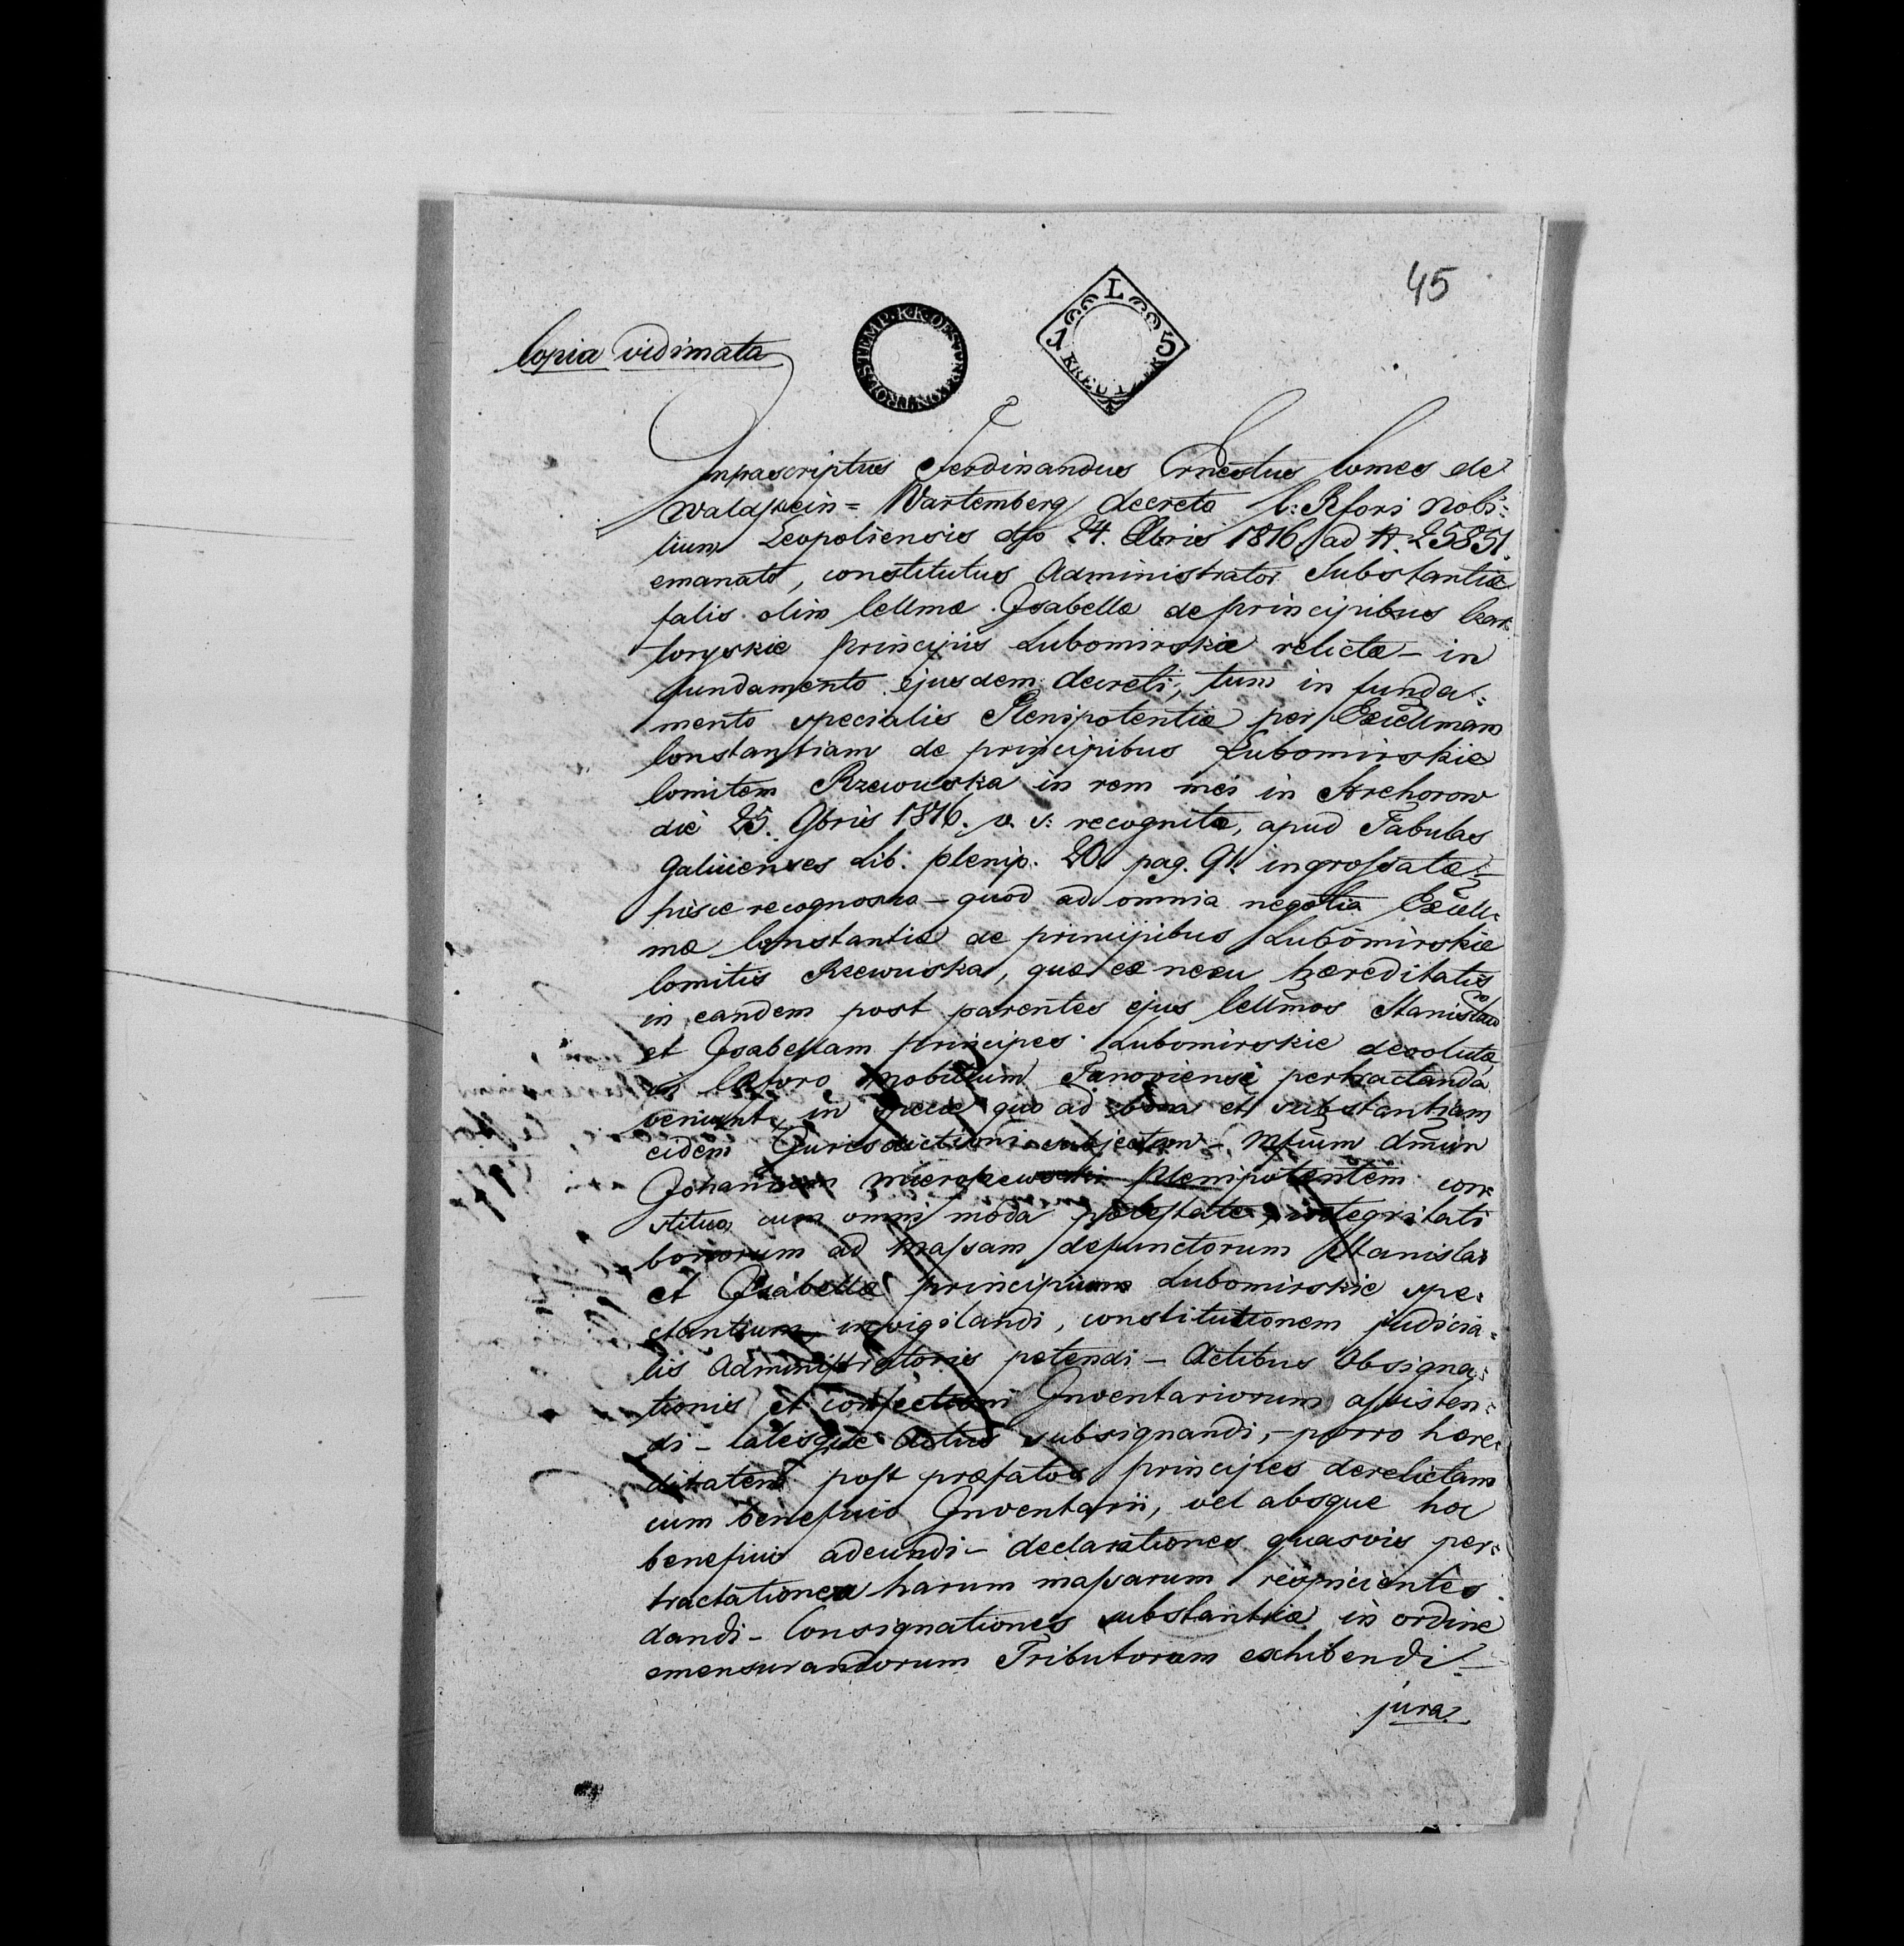 45
Copia vidimata
STEMP. K.K. OESTERR. CONTROL
L
15
KREUTZER
Infrascriptus Ferdinandus Ernestus Comes de
Waldstein = Wartemberg decreto C: R fori Nobi:
lium Leopoliensis dto 24. 8bris 1816 ad N. 25851.
emanato, constitutus Administrator Substantiæ
talis olim Cellmæ Isabellæ de principibus Czar:
toryskie principis Lubomirskie relictæ – in
fundamento ejusdem decreti, tum in funda:
mento specialis Plenipotentiæ per Excellmam
Constantiam de principibus Lubomirskie
Comitem Rzewuska in rem mei in
die 25. 9bris 1816. v. s: recognitæ, apud Tabulas
Galicienses Lib. plenip. 20 pag. 91. ingrossatæ –
hisce recognosco – quod ad omnia negotia Excell:
mæ Constantiæ de principibus Lubomirskie
Comitis Rzewuska, quæ ex nexu hæreditatis
in eandem post parentes ejus Cellmos Stanislaw
et Isabellam principes Lubomirskie devolutæ
in C R foro Nobilium Tarnoviensi pertractanda
veniunt, in specie quo ad bona et substantiam
eidem Jurisdictioni subjectam – Mfium dmum
Johannem plenipotentem con:
stituo cum omni moda potestate, integritati
bonorum ad Massam defunctorum Stanislai
et Isabellæ principum Lubomirskie spe:
ctantium invigilandi, constitutionem judicia:
lis Administratoris petendi – Actibus Obsigna:
tionis et confectioni Inventariorum assisten:
di – talesque Actus subsignandi, – porro hære:
ditatem post præfatos principes derelictam
cum beneficio Inventarii, vel absque hoc
beneficio adeundi – declarationes quasvis per:
tractationem harum massarum respicientes
dandi – Consignationes substantiæ in ordine
emensurandorum Tributorum exhibendi –
jura